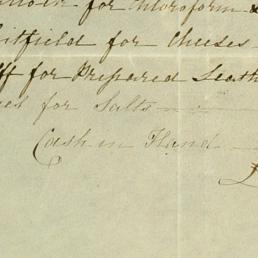 for Chloroform &
for Cheeses
for Prepared Leath
for Salts
Cash in Hand